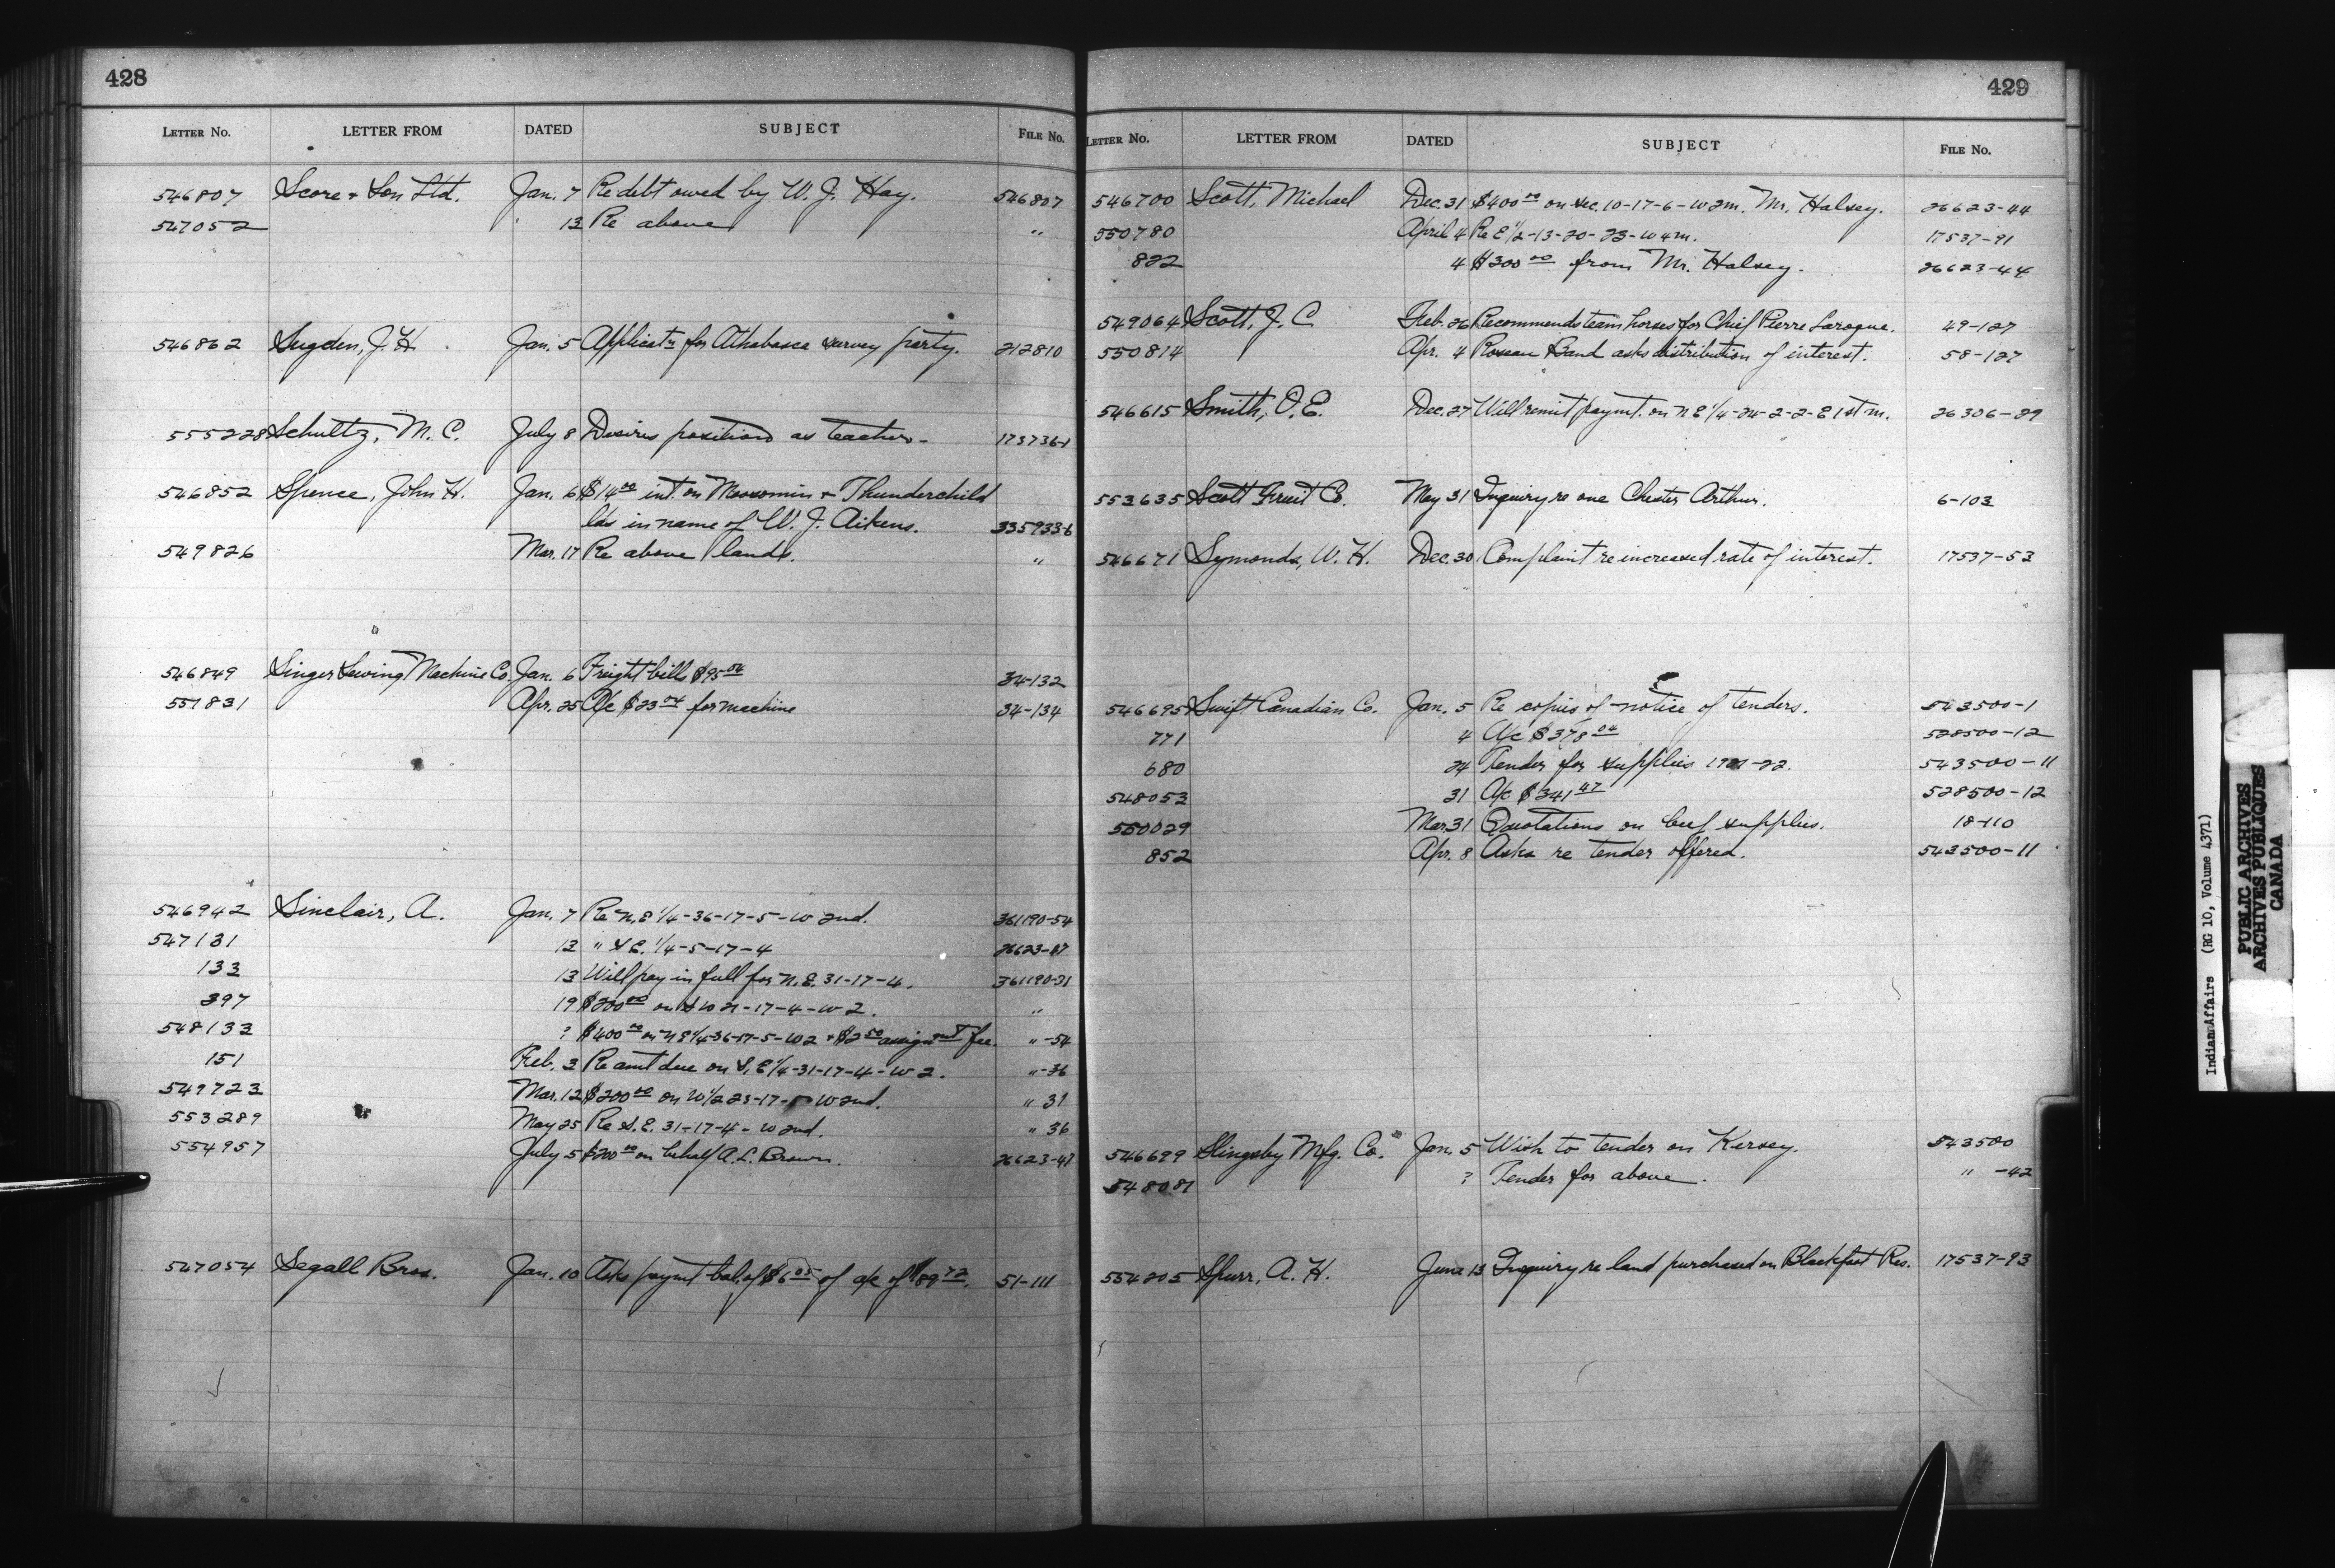 428
LETTER No. LETTER FROM DATED SUBJECT FILE No.
546807 Score + Son Ltd. Jan. 7 Re debt owed by W. J. Hay. 546807
547052 13 Re above "
546862 Sugden, J. H. Jan. 5 Applicatn for Athabasca survey party. 212810
555228 Schultz, M. C. July 8 Desires position as teacher - 173736-1
546852 Spence, John H. Jan. 6 $14.00 int. on Moosomin + Thunderchild
lds in name of W. J. Aikens. 335933-6
549826 Mar. 17 Re above lands. "
546849 Singer Sewing Machine Co. Jan. 6 Freight bill 34-132
551831 Apr. 25 A/c for machine 34-134
546942 Sinclair, A. Jan. 7 Re N.E 1/4-36-17-5-W 2nd. 361190-54
547131 13 " S.E. 1/4-5-17-4
133 13 Will pay in full for N.E. 31-17-4. 361190-31
397 19 $200.00 on -17-4-W 2. "
548133 ? $400.00 on N E 1/4-36-17-5-W2 + $2.50 assignmt fee. " -54
151 Feb. 3 Re amt due on S.E 1/4-31-17-4-W 2. " -36
549723 Mar. 12 $200.00 on W 1/2 23-17-5 W 2nd. " 31
553289 May 25 Re S.E. 31-17-4-W 2nd. " 36
554957 July 5 $200.00 on behalf A. L. Brown. 26623-47
547054 Segall Bros. Jan. 10 Asks paymt bal. of $6.05 of a/c of $89.72. 51-111
429
LETTER No. LETTER FROM DATED SUBJECT FILE No.
546700 Scott, Michael Dec. 31 $400.00 on Sec. 10-17-6-W 2m. Mr. Halsey. 26623-44
550780 April 4 Re E 1/2-13-20-23-W 4m. 17537-91
822 4 $300.00 from Mr. Halsey. 26623-44
549064 Scott, J. C. Feb. 26 Recommends team horses for Chief Pierre Laroque. 49-127
550814 Apr. 4 Roseau Band asks distribution of interest. 58-127
546615 Smith, O. E. Dec. 27 Will remit paymt. on N E 1/4-24-2-2-E 1st m. 26306-29
553635 Scott Fruit Co. May 31 Inquiry re one Chester Arthur. 6-103
546671 Symonds, W. H. Dec. 30 Complaint re increased rate of interest. 17537-53
546695 Swift Canadian Co. Jan. 5 Re copies of notice of tenders. 543500-1
771 4 A/c $378.04 528500-12
680 24 Tender for supplies 1921-22. 543500-11
548053 31 A/c $341.47 528500-12
550029 Mar. 31 Quotations on beef supplies. 18-110
852 Apr. 8 Asks re tender offered. 543500-11
546699 Slingsby Mfg. Co. Jan. 5 Wish to tender on Kersey. 543500
548081 ? Tender for above. " -42
554205 Spurr, A. H. June 13 Inquiry re land purchased on Blackfoot Res. 17537-93
Indian Affairs (RG 10, Volume 4371)
PUBLIC ARCHIVES
ARCHIVES PUBLIQUES
CANADA